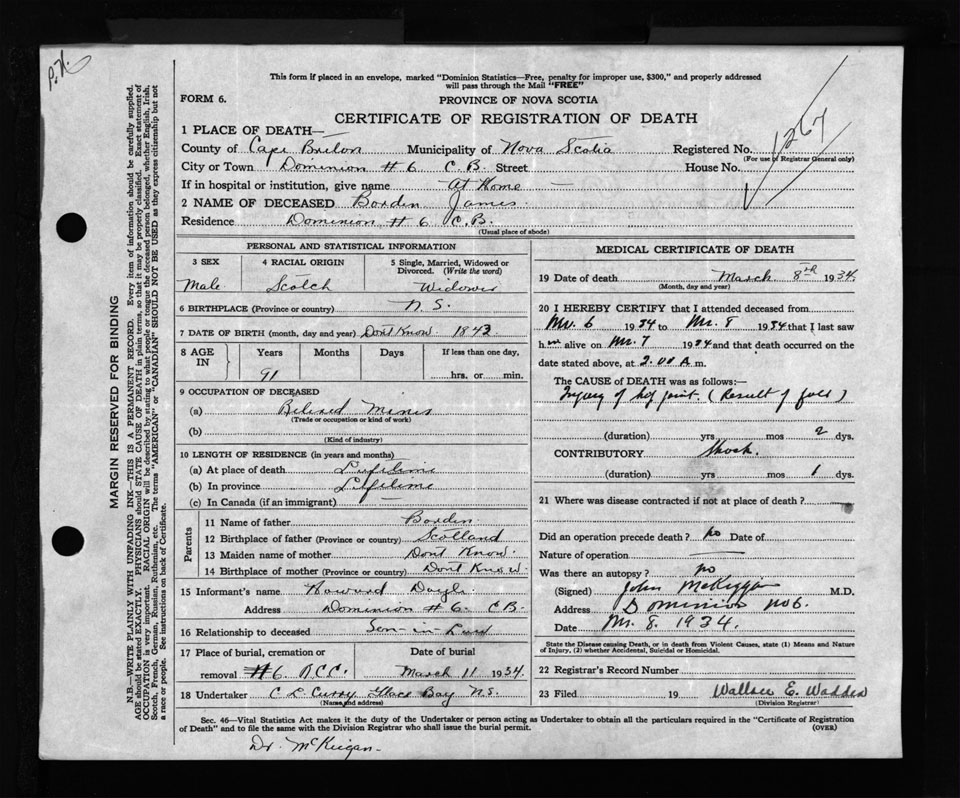 P.H.
This form if placed in an envelope, marked "Dominion Statistics—Free, penalty for improper use, $300," and properly addressed
will pass through the Mail "FREE"
FORM 6.
PROVINCE OF NOVA SCOTIA
CERTIFICATE OF REGISTRATION OF DEATH
1267
1 PLACE OF DEATH—
County of Cape Breton Municipality of Nova Scotia Registered No.
(For use of Registrar General only)
City or Town Dominion # 6 C.B. Street House No.
If in hospital or institution, give name At Home
2 NAME OF DECEASED Borden James
Residence Dominion # 6 C.B.
(Usual place of abode)
PERSONAL AND STATISTICAL INFORMATION
3 SEX 4 RACIAL ORIGIN 5 Single, Married, Widowed or
Divorced. (Write the word)
Male Scotch Widower
6 BIRTHPLACE (Province or country) N.S.
7 DATE OF BIRTH (month, day and year) Dont Know 1843
8 AGE IN Years Months Days If less than one day,
91 hrs. or min.
9 OCCUPATION OF DECEASED
(a) Retired Miner
(Trade or occupation or kind of work)
(b)
(Kind of industry)
10 LENGTH OF RESIDENCE (in years and months)
(a) At place of death Lifetime
(b) In province Lifetime
(c) In Canada (if an immigrant)
Parents
11 Name of father Borden
12 Birthplace of father (Province or country) Scotland
13 Maiden name of mother Dont Know
14 Birthplace of mother (Province or country) Dont Know
15 Informant's name Howard Doyle
Address Dominion # 6. CB
16 Relationship to deceased Son-in-Law
17 Place of burial, cremation or Date of burial
removal #6 R.C.C. March 11 1934
18 Undertaker C L Curry Glace Bay N.S.
(Name and address)
MEDICAL CERTIFICATE OF DEATH
19 Date of death March 8th 1934
(Month, day and year)
20 I HEREBY CERTIFY that I attended deceased from
Mr. 6 1934 to Mr. 8 1934 that I last saw
him alive on Mr. 7 1934 and that death occurred on the
date stated above, at 2.00 A m.
The CAUSE OF DEATH was as follows:—
Injury of hip joint. (Result of fall)
(duration) yrs mos 2 dys.
CONTRIBUTORY Shock.
(duration) yrs mos 1 dys.
21 Where was disease contracted if not at place of death?
Did an operation precede death? no Date of
Nature of operation
Was there an autopsy? no
(Signed) John McKiggan M.D.
Address Dominion No 6.
Date Mr. 8. 1934.
State the Disease causing Death, or in death from Violent Causes, state (1) Means and Nature
of Injury, (2) whether Accidental, Suicidal or Homicidal.
22 Registrar's Record Number
23 Filed 19 Wallace E. Wadden
(Division Registrar)
Sec. 46—Vital Statistics Act makes it the duty of the Undertaker or person acting as Undertaker to obtain all the particulars required in the "Certificate of Registration
of Death" and to file the same with the Division Registrar who shall issue the burial permit. (OVER)
Dr. McKeigan
MARGIN RESERVED FOR BINDING
N.B.—WRITE PLAINLY WITH UNFADING INK—THIS IS A PERMANENT RECORD. Every item of information should be carefully supplied.
AGE should be stated EXACTLY. PHYSICIANS should STATE CAUSE OF DEATH in plain terms, so that it may be properly classified. Exact statement of
OCCUPATION is very important. RACIAL ORIGIN will be described by stating to what people or tongue the deceased person belonged, whether English, Irish,
Scotch, French, German, Russian, Ruthenian, etc. The terms "AMERICAN" or "CANADIAN" SHOULD NOT BE USED as they express citizenship but not
a race or people. See instructions on back of Certificate.